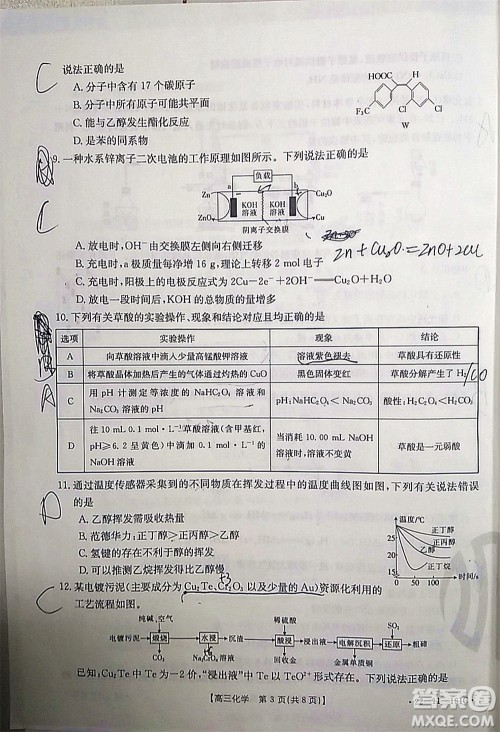 C
说法正确的是
A. 分子中含有 17 个碳原子
B. 分子中所有原子可能共平面
C. 能与乙醇发生酯化反应
D. 是苯的同系物
HOOC
H
F₃C
Cl
Cl
W
9. 一种水系锌离子二次电池的工作原理如图所示。下列说法正确的是
C
负载
a
b
Zn
Cu₂O
ZnO
Cu
KOH溶液
KOH溶液
阴离子交换膜
Zn+Cu₂O=ZnO+2Cu
A. 放电时，OH⁻由交换膜左侧向右侧迁移
B. 充电时，a 极质量每净增 16 g，理论上转移 2 mol 电子
C. 充电时，阳极上的电极反应式为 2Cu－2e⁻＋2OH⁻══Cu₂O＋H₂O
D. 放电一段时间后，KOH 的总物质的量增多
10. 下列有关草酸的实验操作、现象和结论对应且均正确的是
A
选项 实验操作 现象 结论
A 向草酸溶液中滴入少量高锰酸钾溶液 溶液紫色褪去 草酸具有还原性
B 将草酸晶体加热后产生的气体通过灼热的 CuO 黑色固体变红 草酸分解产生了 H₂/CO
C 用 pH 计测定等浓度的 NaHC₂O₄ 溶液和 Na₂CO₃ 溶液的 pH pH：NaHC₂O₄＜Na₂CO₃ 酸性：H₂C₂O₄＞H₂CO₃
D 往 10 mL 0.1 mol·L⁻¹ 草酸溶液(含甲基红，pH≥6.2 呈黄色)中滴加 0.1 mol·L⁻¹ NaOH 溶液 当消耗 10.00 mL NaOH 溶液时，溶液变黄 草酸是一元弱酸
11. 通过温度传感器采集到的不同物质在挥发过程中的温度曲线图如图，下列有关说法错误的是
D
A. 乙醇挥发需吸收热量
B. 范德华力：正丁醇＞正丙醇＞乙醇
C. 氢键的存在不利于物质的挥发
D. 可以推测乙烷挥发得比乙醇慢
温度/℃
30
25
20
15
10
正丁醇
正丙醇
乙醇
正丁烷
0 50 100 时间/s
12. 某电镀污泥(主要成分为 Cu₂Te、Cr₂O₃ 以及少量的 Au)资源化利用的工艺流程如图。
+3
C
纯碱、空气
电镀污泥→煅烧→水浸→沉渣→酸浸→浸出液→电解沉积→还原→粗碲
稀硫酸
SO₂
浸出液
Na₂CrO₄溶液
金属单质铜
已知：Cu₂Te 中 Te 为－2 价，“浸出液”中碲以 TeO²⁺ 形式存在。下列说
【高三化学 第 3 页(共 8 页)】
答案圈
MXQE.COM